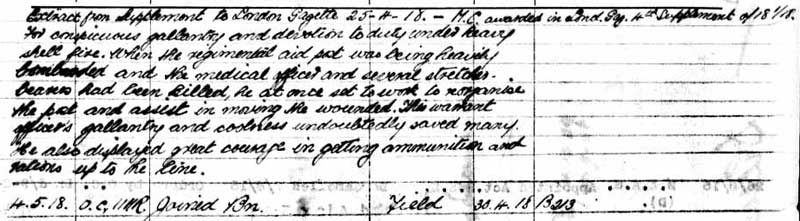 Extract from Supplement to London Gazette 25-4-18. – M.C. awarded in Lond. Gaz. 4th Supplement of 18/1/18.
For conspicuous gallantry and devotion to duty under heavy
shell fire. When the regimental aid post was being heavily
bombarded and the medical officer and several stretcher-
bearers had been killed, he at once set to work to reorganise
the post and assist in moving the wounded. This warrant
officer's gallantry and coolness undoubtedly saved many.
He also displayed great courage in getting ammunition and
rations up to the line.
4.5.18. O.C. Joined Bn. Field 30.4.18 B213